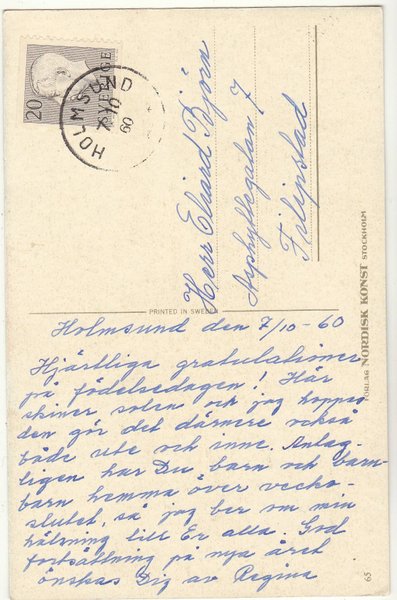 20
SVERIGE
HOLMSUND
7 10
60
Herr Eliard Björn
Asphyttegatan 7
Filipstad
PRINTED IN SWEDEN
FÖRLAG NORDISK KONST STOCKHOLM
Holmsund den 7/10-60
Hjärtliga gratulationer
på födelsedagen! Här
skiner solen och jag hoppas
den gör det därnere också
både ute och inne. Antag-
ligen har Du barn och barn-
barn hemma över vecko-
slutet, så jag ber om min
hälsning till Er alla. God
fortsättning på nya året
önskas Dig av Regina
65